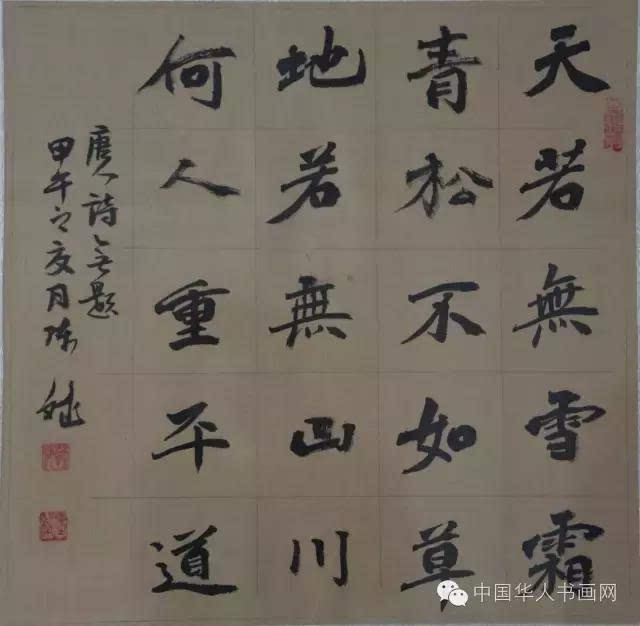 天若無雪霜
青松不如草
地若無山川
何人重平道
唐人詩無題
甲午之夏月陈
中国华人书画网